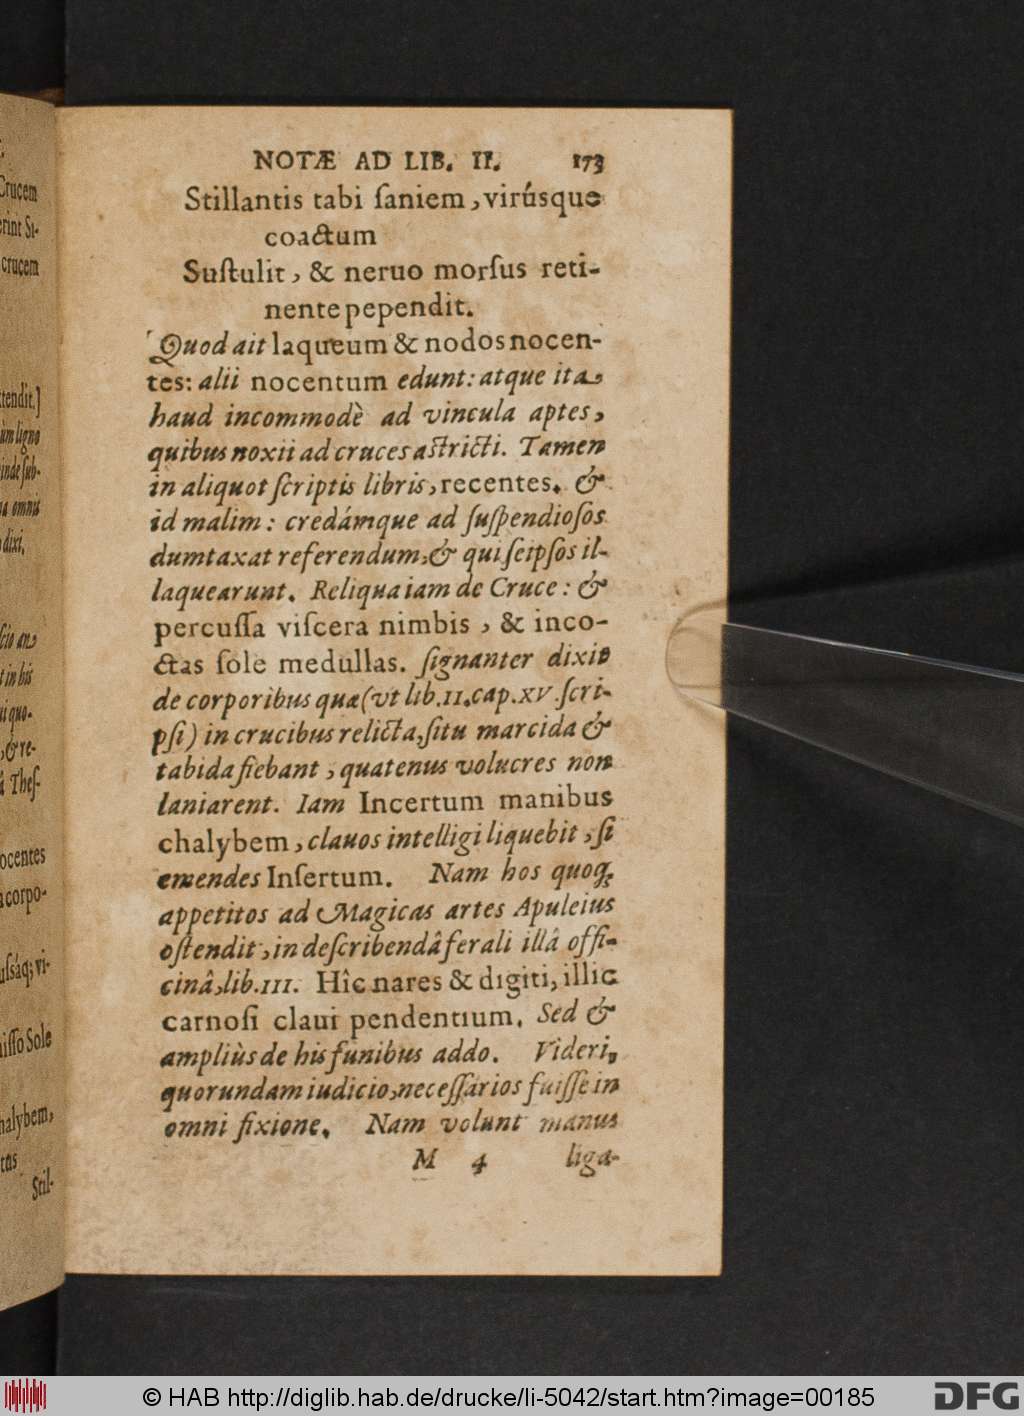 NOTÆ AD LIB. II. 173
Stillantis tabi ſaniem, virúsque
coactum
Suſtulit, & neruo morſus reti-
nente pependit.
Quod ait laqueum & nodos nocen-
tes: alii nocentum edunt: atque ita
haud incommodè ad vincula aptes,
quibus noxii ad cruces aſtricti. Tamen
in aliquot ſcriptis libris, recentes. &
id malim: credámque ad ſuſpendioſos
dumtaxat referendum, & qui ſeipſos il-
laquearunt. Reliqua iam de Cruce: &
percuſſa viſcera nimbis, & inco-
ctas ſole medullas. ſignanter dixit
de corporibus quæ (vt lib. II. cap. XV. ſcri-
pſi) in crucibus relicta, ſitu marcida &
tabida fiebant, quatenus volucres non
laniarent. Iam Incertum manibus
chalybem, clauos intelligi liquebit, ſi
emendes Inſertum. Nam hos quoq;
appetitos ad Magicas artes Apuleius
oſtendit, in deſcribendâ ferali illâ offi-
cinâ, lib. III. Hîc nares & digiti, illic
carnoſi claui pendentium. Sed &
ampliùs de his funibus addo. Videri,
quorundam iudicio, neceſſarios fuiſſe in
omni fixione. Nam volunt manus
M 4 liga-
Crucem
erint Si-
crucem
tendit.]
ùm ligno
inde ſub-
omnis
dixi,
t in his
ui quo-
, & re-
Theſ-
ocentes
corpo-
uſſáq; vi-
iſſo Sole
halybem,
Stil-
© HAB http://diglib.hab.de/drucke/li-5042/start.htm?image=00185
DFG